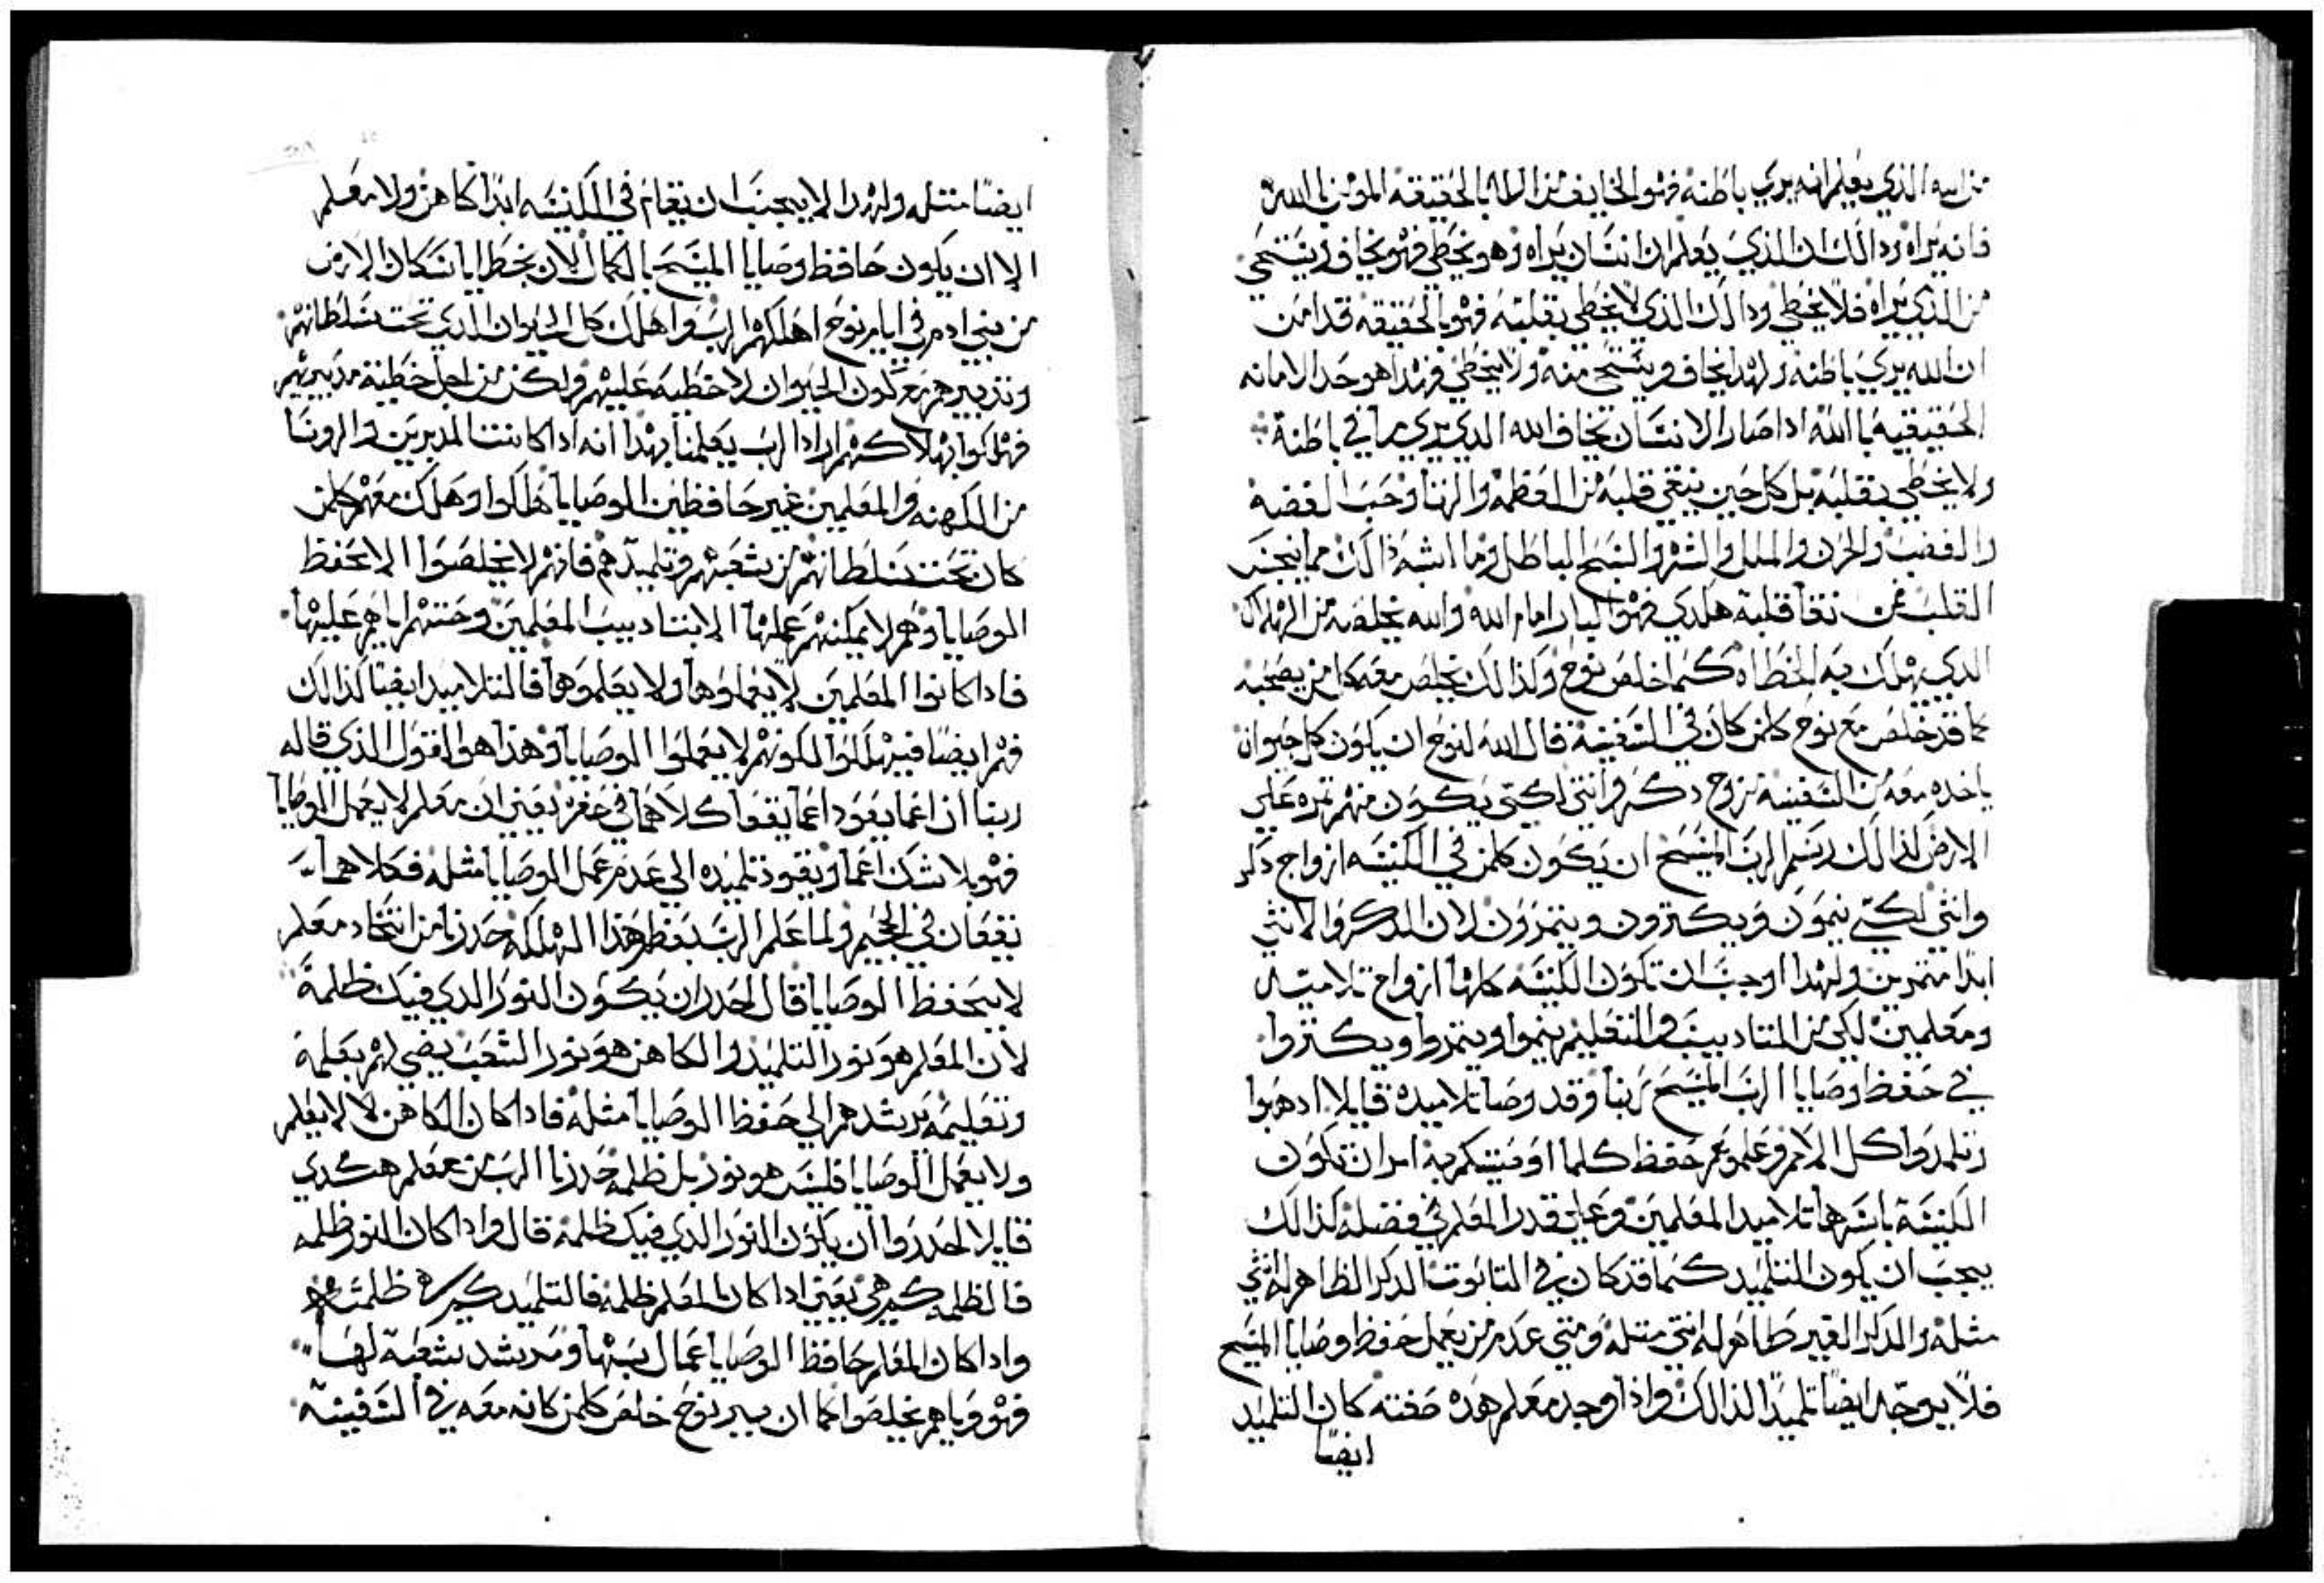 من الله الذي يعلم انه يري باطنه فهو الخايف من الله بالحقيقه المومن بالله
فانه يراه ودالك ان الذي يعلم ان انسان يراه وهو يخطي فهو يخاف ويستحي
من الذي يراه فلا يخطي ودالك الذي لا يخطي بقلبه فهو بالحقيقه قد امن
ان الله يري باطنه ولهدا يخاف ويستحي منه ولا يخطي فهدا هو حد الامانه
الحقيقيه بالله ادا صار الانسان يخاف الله الدي يري ما في باطنه
ولا يخطي بقلبه بل كل حين ينقي قلبه من العظمه والزنا وحب الفضه
والغضب والحزن والملل والشره والسبح الباطل وما اشبه ذالك مما ينجس
القلب فمن نقا قلبه هكدي فهو البار امام الله والله يخلصه من الهلاك
الدي يهلك به الخطاه كما خلص نوح وكذالك يخلص معه كل من يصحبه
كما قد خلص مع نوح كلمن كان في السفينه قال الله لنوح ان يكون كل حيوان
ياخده معه في السفينه تزوج دكر وانتي لكي يكون منهم تمره علي
الارض لذالك رسم الرب المسيح ان يكون كلمن في الكنيسه ازواج دكر
وانثي لكي ينمون ويكترون ويتمرون لان الدكر والانثي
ابدا متمرين ولهدا اوجب ان تكون الكنيسه كلها ازواج تلاميد
ومعلمين لكي من التاديب والتعليم ينموا ويتمروا ويكتروا
في حفظ وصايا الرب المسيح ربنا وقد وصا تلاميده قايلا ادهبوا
وتلمدوا كل الامم وعلموهم حفظ كلما اوصيتكم به امر ان تكون
الكنيسه باسرها تلاميد المعلمين وعلي قدر المعلم في فضله كذالك
يجب ان يكون التلميد كما قد كان في التابوت الدكر الطاهر له انثي
مثله والدكر الغير طاهر له انتي متله ومتي عدم من يعمل حفظ وصايا المسيح
فلا يوجد ايضا تلميدا لذالك واذا وجد معلم هده صفته كان التلميد
ايضا
ايضا متله ولهدا لا يجب ان يقام في الكنيسه ابدا كاهن ولا معلم
الا ان يكون حافظ وصايا المسيح بالكمال لان بخطايا سكان الارض
من بني ادم في ايام نوح اهلكهم الرب واهلك كل الحيوان الدي تحت سلطانهم
وتدبيرهم مع كون الحيوان لا خطيه عليهم ولكن من اجل خطية مدبريهم
فهلكوا بهلاكهم اراد الرب يعلمنا بهدا انه ادا كانت المدبرين والروسا
من الكهنه والمعلمين غير حافظين الوصايا هلكوا وهلك معهم كلمن
كان تحت سلطانهم من شعبهم وتلميدهم فانهم لا يخلصوا الا بحفظ
الوصايا وهم لا يمكنهم عملها الا بتاديب المعلمين وحتهم اياهم عليها
فادا كانوا المعلمين لا يعملوها ولا يعلموها فالتلاميد ايضا لذالك
فهم ايضا فيهلكوا لكونهم لا يعملوا الوصايا وهذا هو القول الذي قاله
ربنا ان اعما يقود اعما يقعا كلاهما في حفره يعني ان معلم لا يعمل الوصايا
فهو بلا شك اعما ويقود تلميده الي عدم عمل الوصايا مثله فكلاهما
يقعان في الجحيم ولما علم الرب بعظم هذا الهلكه حدرنا من اتخاد معلم
لا يحفظ الوصايا قال احدر ان يكون النور الدي فيك ظلمة
لان المعلم هو نور التلميذ والكاهن هو نور الشعب يضي لهم بعلمه
وتعليمه يرشدهم الي حفظ الوصايا مثله فادا كان الكاهن لا يعلم
ولا يعمل الوصايا فليس هو نور بل ظلمه حدرنا الرب من معلم هكدي
قايلا احدروا ان يكون النور الدي فيك ظلمه قال وادا كان النور ظلمه
فالظلمه كم هي يعني ادا كان المعلم ظلمه فالتلميد كم هي ظلمته
وادا كان المعلم حافظ الوصايا عمال بها ومرشد شعبه لها
فهو وياهم يخلصوا كما ان ببر نوح خلص كلمن كانه معه في السفينه